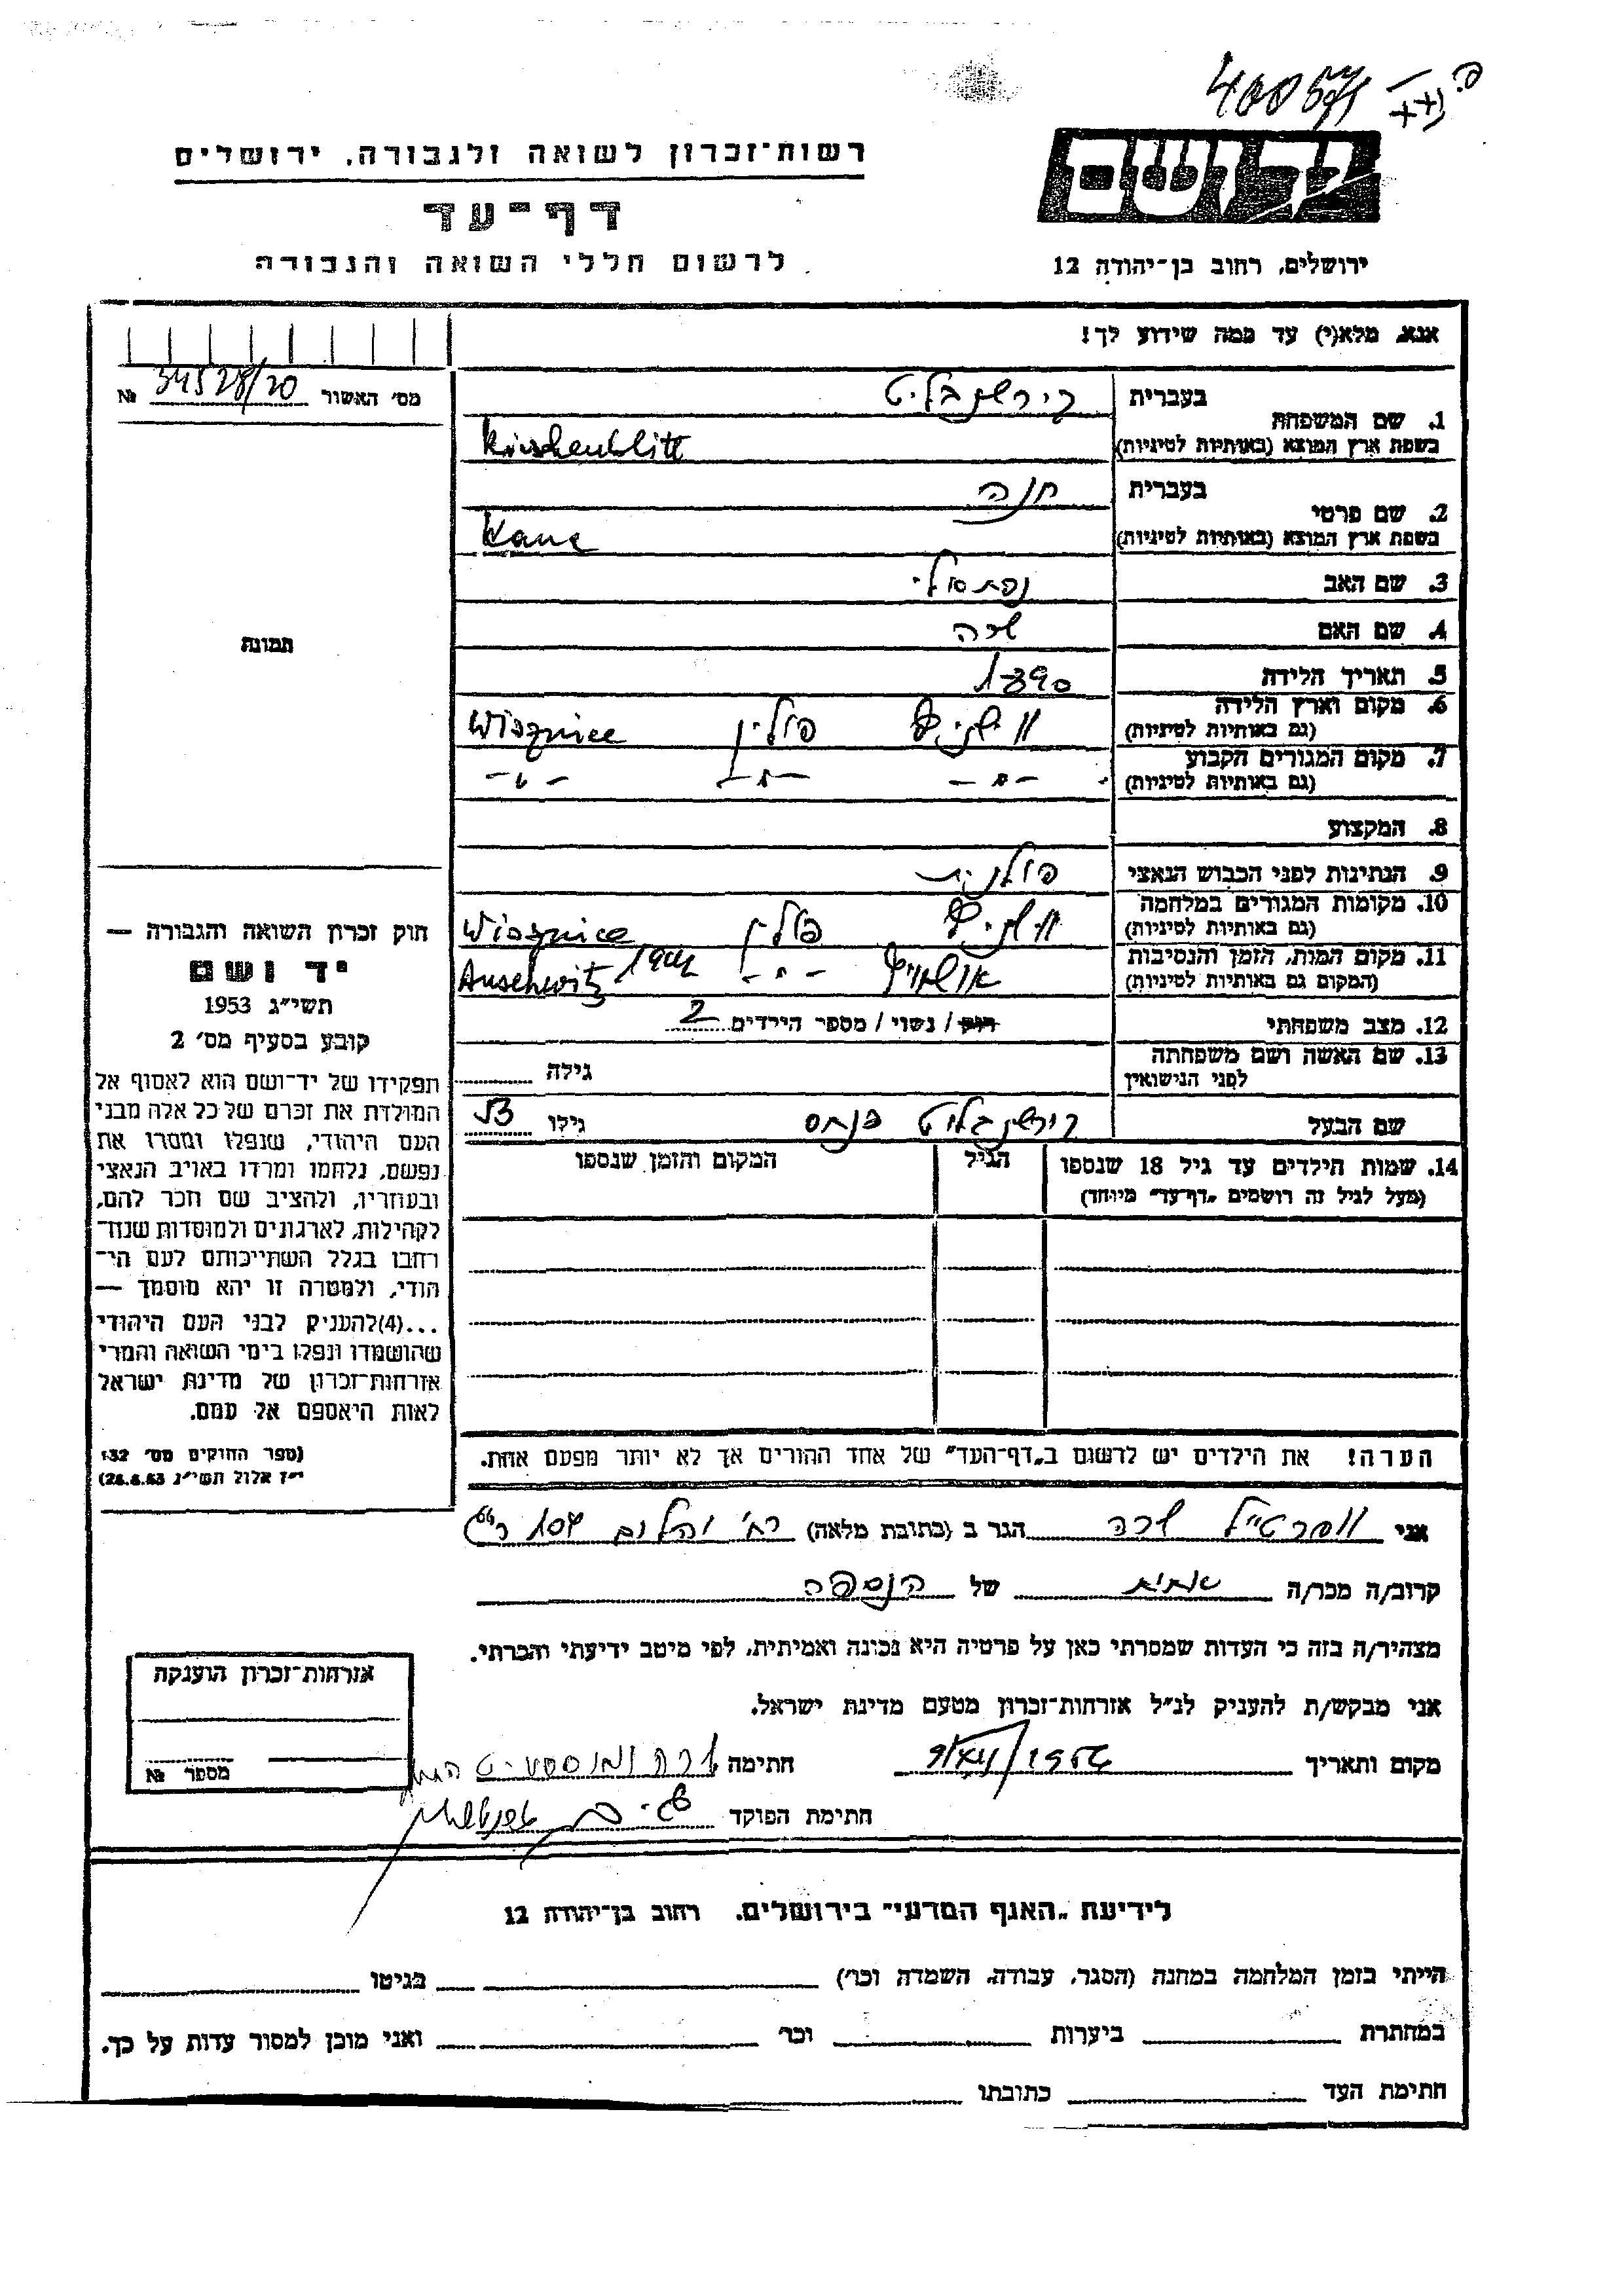 400571
יד ושם
רשות־זכרון לשואה ולגבורה, ירושלים
דף־עד
לרשום חללי השואה והגבורה
ירושלים, רחוב בן־יהודה 12
אנא, מלא(י) עד כמה שידוע לך!
מס׳ האשור 34528/20 №
1. שם המשפחה
בעברית קירשנבליט
בשפת ארץ המוצא (באותיות לטיניות) Kirschenblitt
2. שם פרטי
בעברית חנה
בשפת ארץ המוצא (באותיות לטיניות) Kane
3. שם האב נפתלי
4. שם האם שרה
5. תאריך הלידה 1890
6. מקום וארץ הלידה
(גם באותיות לטיניות) וישניצ פולין Wisznice
7. מקום המגורים הקבוע
(גם באותיות לטיניות) -"- -"- -"-
8. המקצוע
9. הנתינות לפני הכבוש הנאצי פולנית
10. מקומות המגורים במלחמה
(גם באותיות לטיניות) וישניצ פולין Wisznice
11. מקום המות, הזמן והנסיבות
(המקום גם באותיות לטיניות) אושויץ -"- 1942 Auschwitz
12. מצב משפחתי רווק / נשוי / מספר הילדים 2
13. שם האשה ושם משפחתה
לפני הנישואין גילה
שם הבעל קירשנבליט פנחס גילו 53
14. שמות הילדים עד גיל 18 שנספו הגיל המקום והזמן שנספו
(מעל לגיל זה רושמים „דף־עד״ מיוחד)
הערה! את הילדים יש לרשום ב„דף־העד״ של אחד ההורים אך לא יותר מפעם אחת.
תמונה
חוק זכרון השואה והגבורה —
יד ושם
תשי״ג 1953
קובע בסעיף מס׳ 2
תפקידו של יד־ושם הוא לאסוף אל
המולדת את זכרם של כל אלה מבני
העם היהודי, שנפלו ומסרו את
נפשם, נלחמו ומרדו באויב הנאצי
ובעוזריו, ולהציב שם וזכר להם,
לקהילות, לארגונים ולמוסדות שנח־
רבו בגלל השתייכותם לעם הי־
הודי, ולמטרה זו יהא מוסמך —
...(4)להעניק לבני העם היהודי
שהושמדו ונפלו בימי השואה והמרי
אזרחות־זכרון של מדינת ישראל
לאות היאספם אל עמם.
(ספר החוקים מס׳ 132
י״ז אלול תשי״ג 28.8.53)
אני שרה הגר ב (כתובת מלאה) רח׳
קרוב/ה מכר/ה אחות של הנספה
מצהיר/ה בזה כי העדות שמסרתי כאן על פרטיה היא נכונה ואמיתית, לפי מיטב ידיעתי והכרתי.
אני מבקש/ת להעניק לנ״ל אזרחות־זכרון מטעם מדינת ישראל.
מקום ותאריך חתימה
חתימת הפוקד
אזרחות־זכרון הוענקה
מספר №
לידיעת „האגף המדעי״ בירושלים, רחוב בן־יהודה 12
הייתי בזמן המלחמה במחנה (הסגר, עבודה, השמדה וכו׳) בגיטו
במחתרת ביערות וכו׳ ואני מוכן למסור עדות על כך.
חתימת העד כתובתו